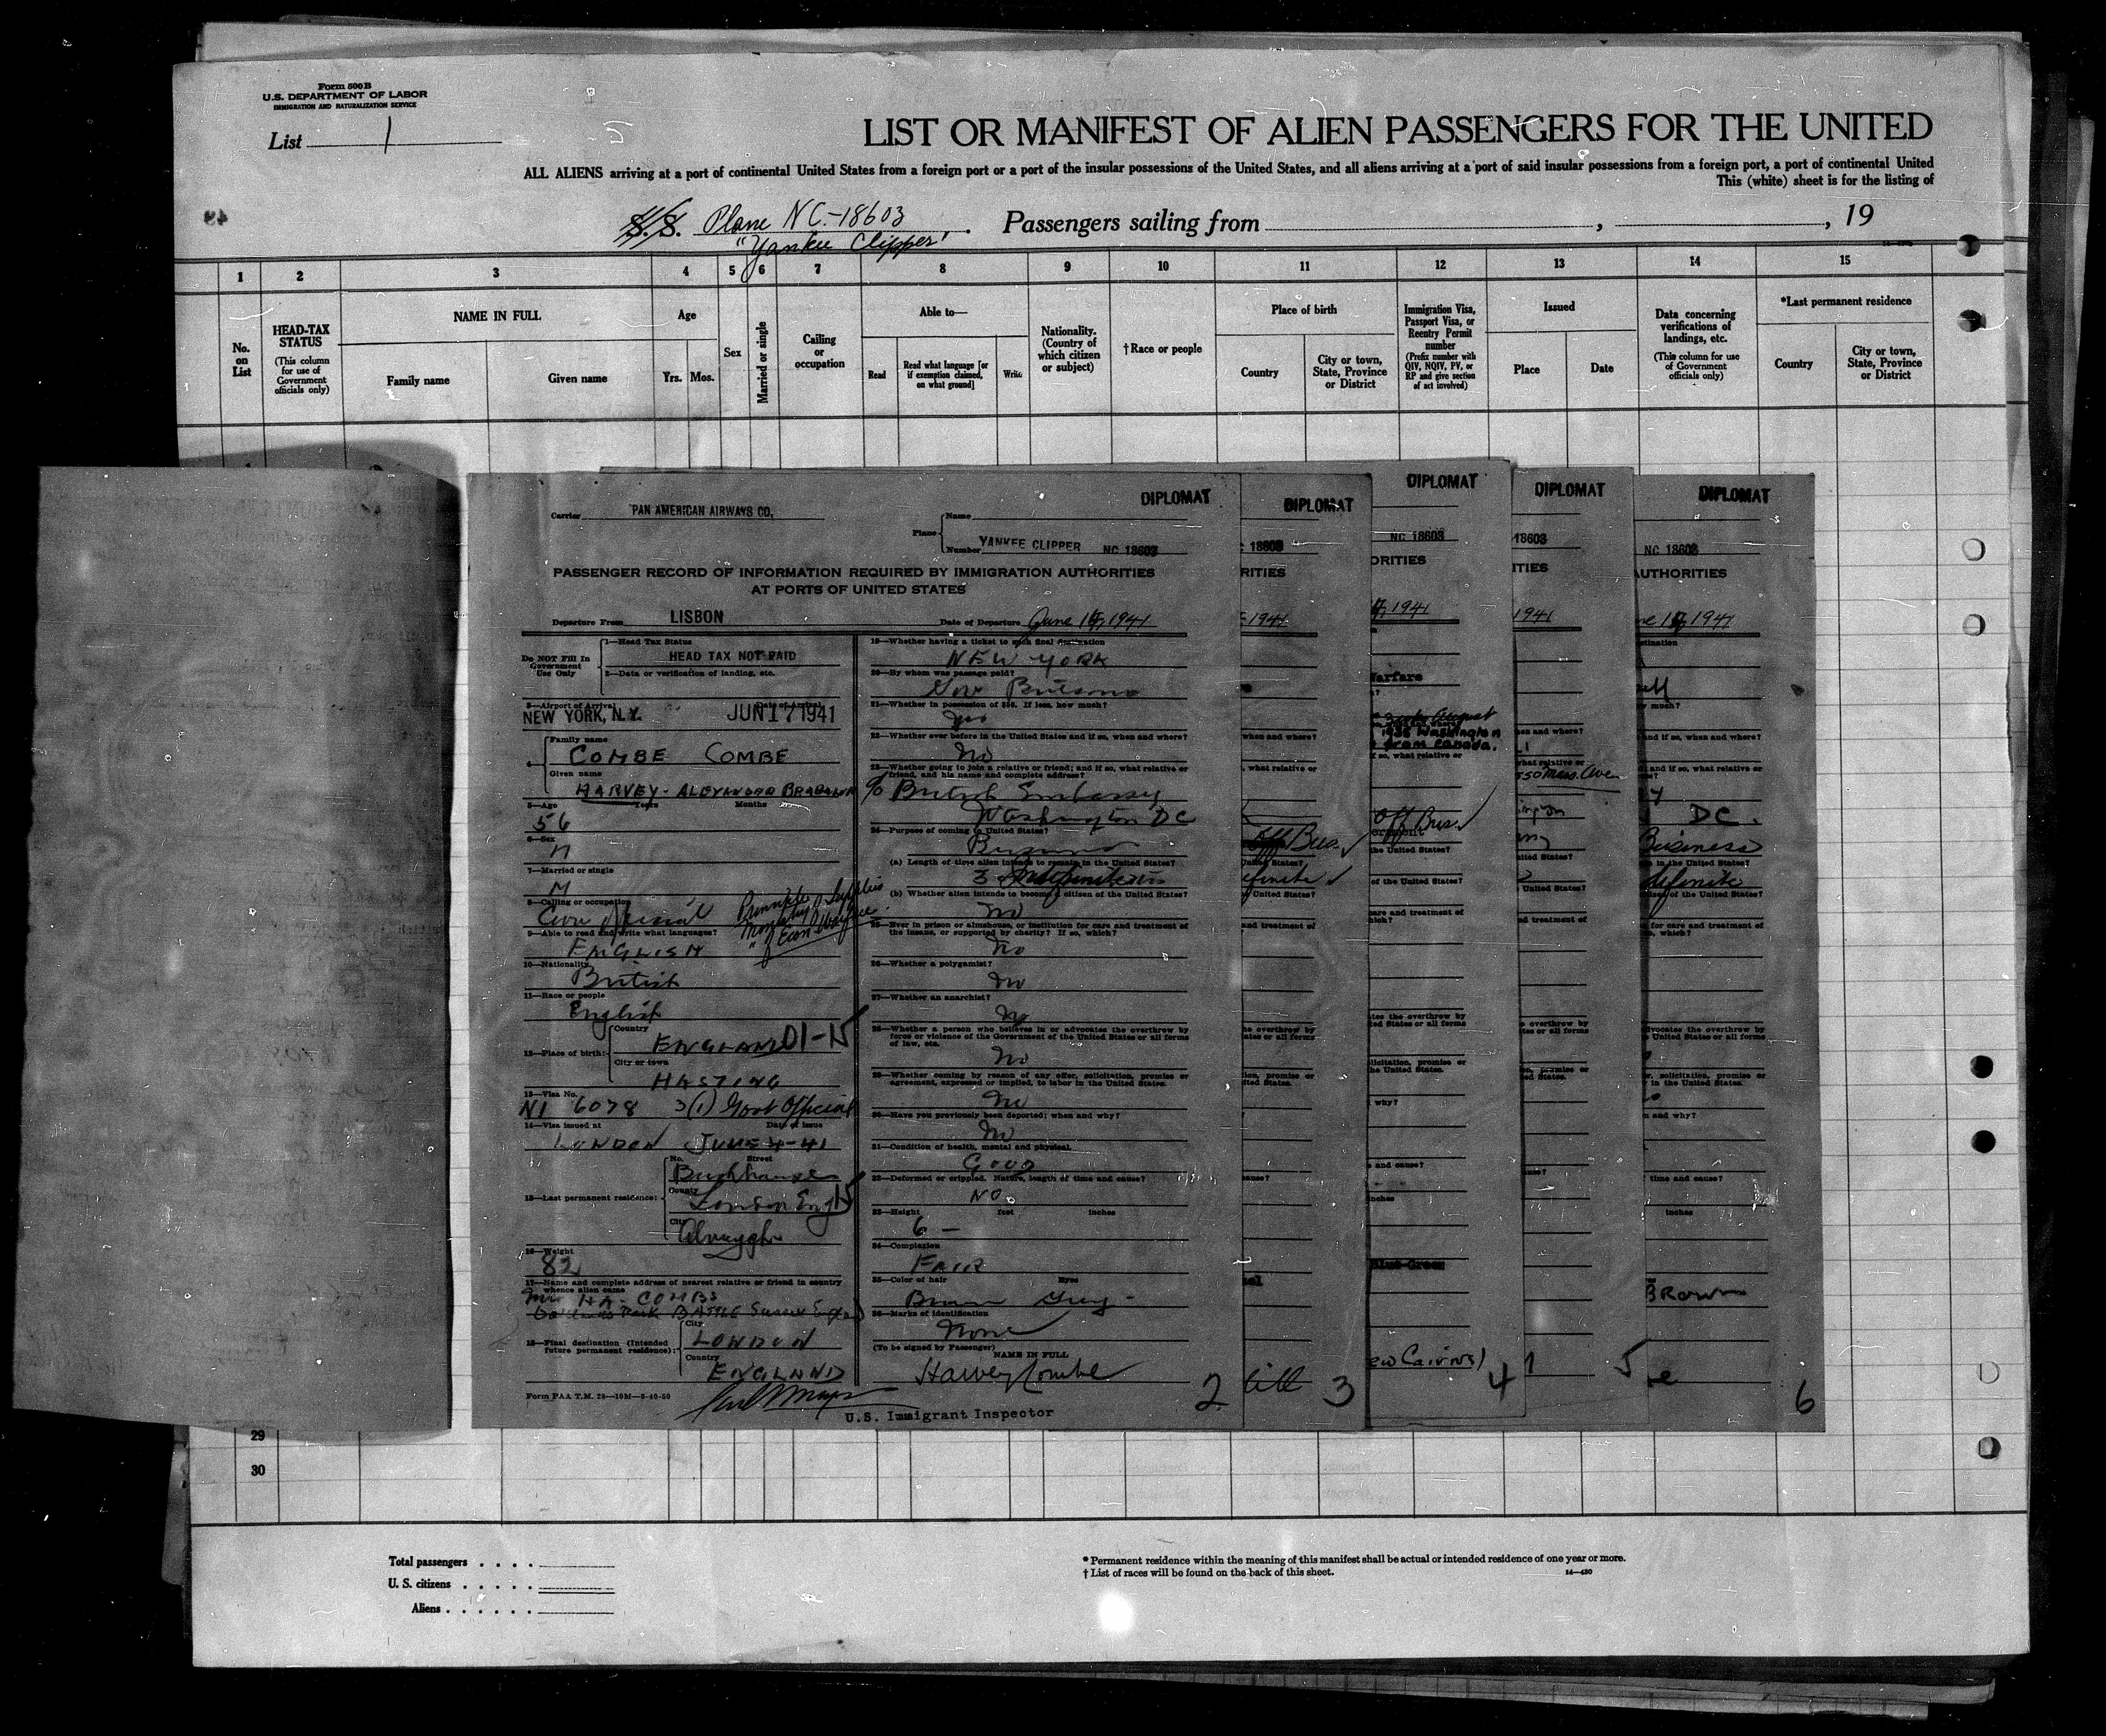 Form 500B
U.S. DEPARTMENT OF LABOR
IMMIGRATION AND NATURALIZATION SERVICE
List 1
LIST OR MANIFEST OF ALIEN PASSENGERS FOR THE UNITED
ALL ALIENS arriving at a port of continental United States from a foreign port or a port of the insular possessions of the United States, and all aliens arriving at a port of said insular possessions from a foreign port, a port of continental United
This (white) sheet is for the listing of
S.S. Plane NC-18603 . Passengers sailing from , , 19
"Yankee Clipper"
1 2 3 4 5 6 7 8 9 10 11 12 13 14 15
No. on List
HEAD-TAX STATUS
(This column for use of Government officials only)
NAME IN FULL
Family name
Given name
Age
Yrs. Mos.
Sex
Married or single
Calling or occupation
Able to—
Read
Read what language [or if exemption claimed, on what ground]
Write
Nationality. (Country of which citizen or subject)
†Race or people
Place of birth
Country
City or town, State, Province or District
Immigration Visa, Passport Visa, or Reentry Permit number
(Prefix number with QIV, NQIV, PV, or RP and give section of act involved)
Issued
Place
Date
Data concerning verifications of landings, etc.
(This column for use of Government officials only)
*Last permanent residence
Country
City or town, State, Province or District
DIPLOMAT
Carrier PAN AMERICAN AIRWAYS CO.
Plane Name
Number YANKEE CLIPPER NC 18603
PASSENGER RECORD OF INFORMATION REQUIRED BY IMMIGRATION AUTHORITIES
AT PORTS OF UNITED STATES
Departure From LISBON
Date of Departure June 1941
Do NOT Fill In Government Use Only
1—Head Tax Status
HEAD TAX NOT PAID
2—Data or verification of landing, etc.
3—Airport of Arrival Date of Arrival
NEW YORK, N.Y. JUN 17 1941
4 Family name
COMBE COMBE
Given name
HARVEY - ALEXANDER
5—Age Years Months
56
6—Sex
M
7—Married or single
M
8—Calling or occupation
9—Able to read and write what languages?
ENGLISH
10—Nationality
British
11—Race or people
English
12—Place of birth: Country
ENGLAND 01-15
City or town
HASTING
13—Visa No.
NI 6078 3(1) Govt Official
14—Visa issued at Date of issue
LONDON JUNE 4-41
15—Last permanent residence: No. Street
Country
London Eng 15
City
16—Weight
82
17—Name and complete address of nearest relative or friend in country whence alien came
Mrs H.A. COMBE
Park BATTLE Sussex
18—Final destination (Intended future permanent residence): City
LONDON
Country
ENGLAND
Form PAA T.M. 28—10M—5-40-50
U.S. Immigrant Inspector
19—Whether having a ticket to such final destination
NEW YORK
20—By whom was passage paid?
21—Whether in possession of $50. If less, how much?
Yes
22—Whether ever before in the United States and if so, when and where?
No
23—Whether going to join a relative or friend; and if so, what relative or friend, and his name and complete address?
c/o British Embassy
Washington DC
24—Purpose of coming to United States?
Business
(a) Length of time alien intends to remain in the United States?
3 Indefinite
(b) Whether alien intends to become a citizen of the United States?
No
25—Ever in prison or almshouse, or institution for care and treatment of the insane, or supported by charity? If so, which?
No
26—Whether a polygamist?
No
27—Whether an anarchist?
No
28—Whether a person who believes in or advocates the overthrow by force or violence of the Government of the United States or all forms of law, etc.
No
29—Whether coming by reason of any offer, solicitation, promise or agreement, expressed or implied, to labor in the United States.
No
30—Have you previously been deported; when and why?
No
31—Condition of health, mental and physical.
GOOD
32—Deformed or crippled. Nature, length of time and cause?
NO
33—Height feet inches
6 —
34—Complexion
FAIR
35—Color of hair Eyes
Brown Grey
36—Marks of identification
None
(To be signed by Passenger)
NAME IN FULL
Harvey Combe
2
DIPLOMAT
18603
RITIES
1941
Off Bus.
3
DIPLOMAT
NC 18603
ORITIES
1941
Warfare
August
1938 Washington
from Canada.
Off Bus.
Blue-Green
4
DIPLOMAT
18603
ITIES
1941
550 Mass. Ave
5
DIPLOMAT
NC 18603
AUTHORITIES
1941
DC.
Business
Brown
6
29
30
Total passengers
U. S. citizens
Aliens
* Permanent residence within the meaning of this manifest shall be actual or intended residence of one year or more.
† List of races will be found on the back of this sheet.
14—430